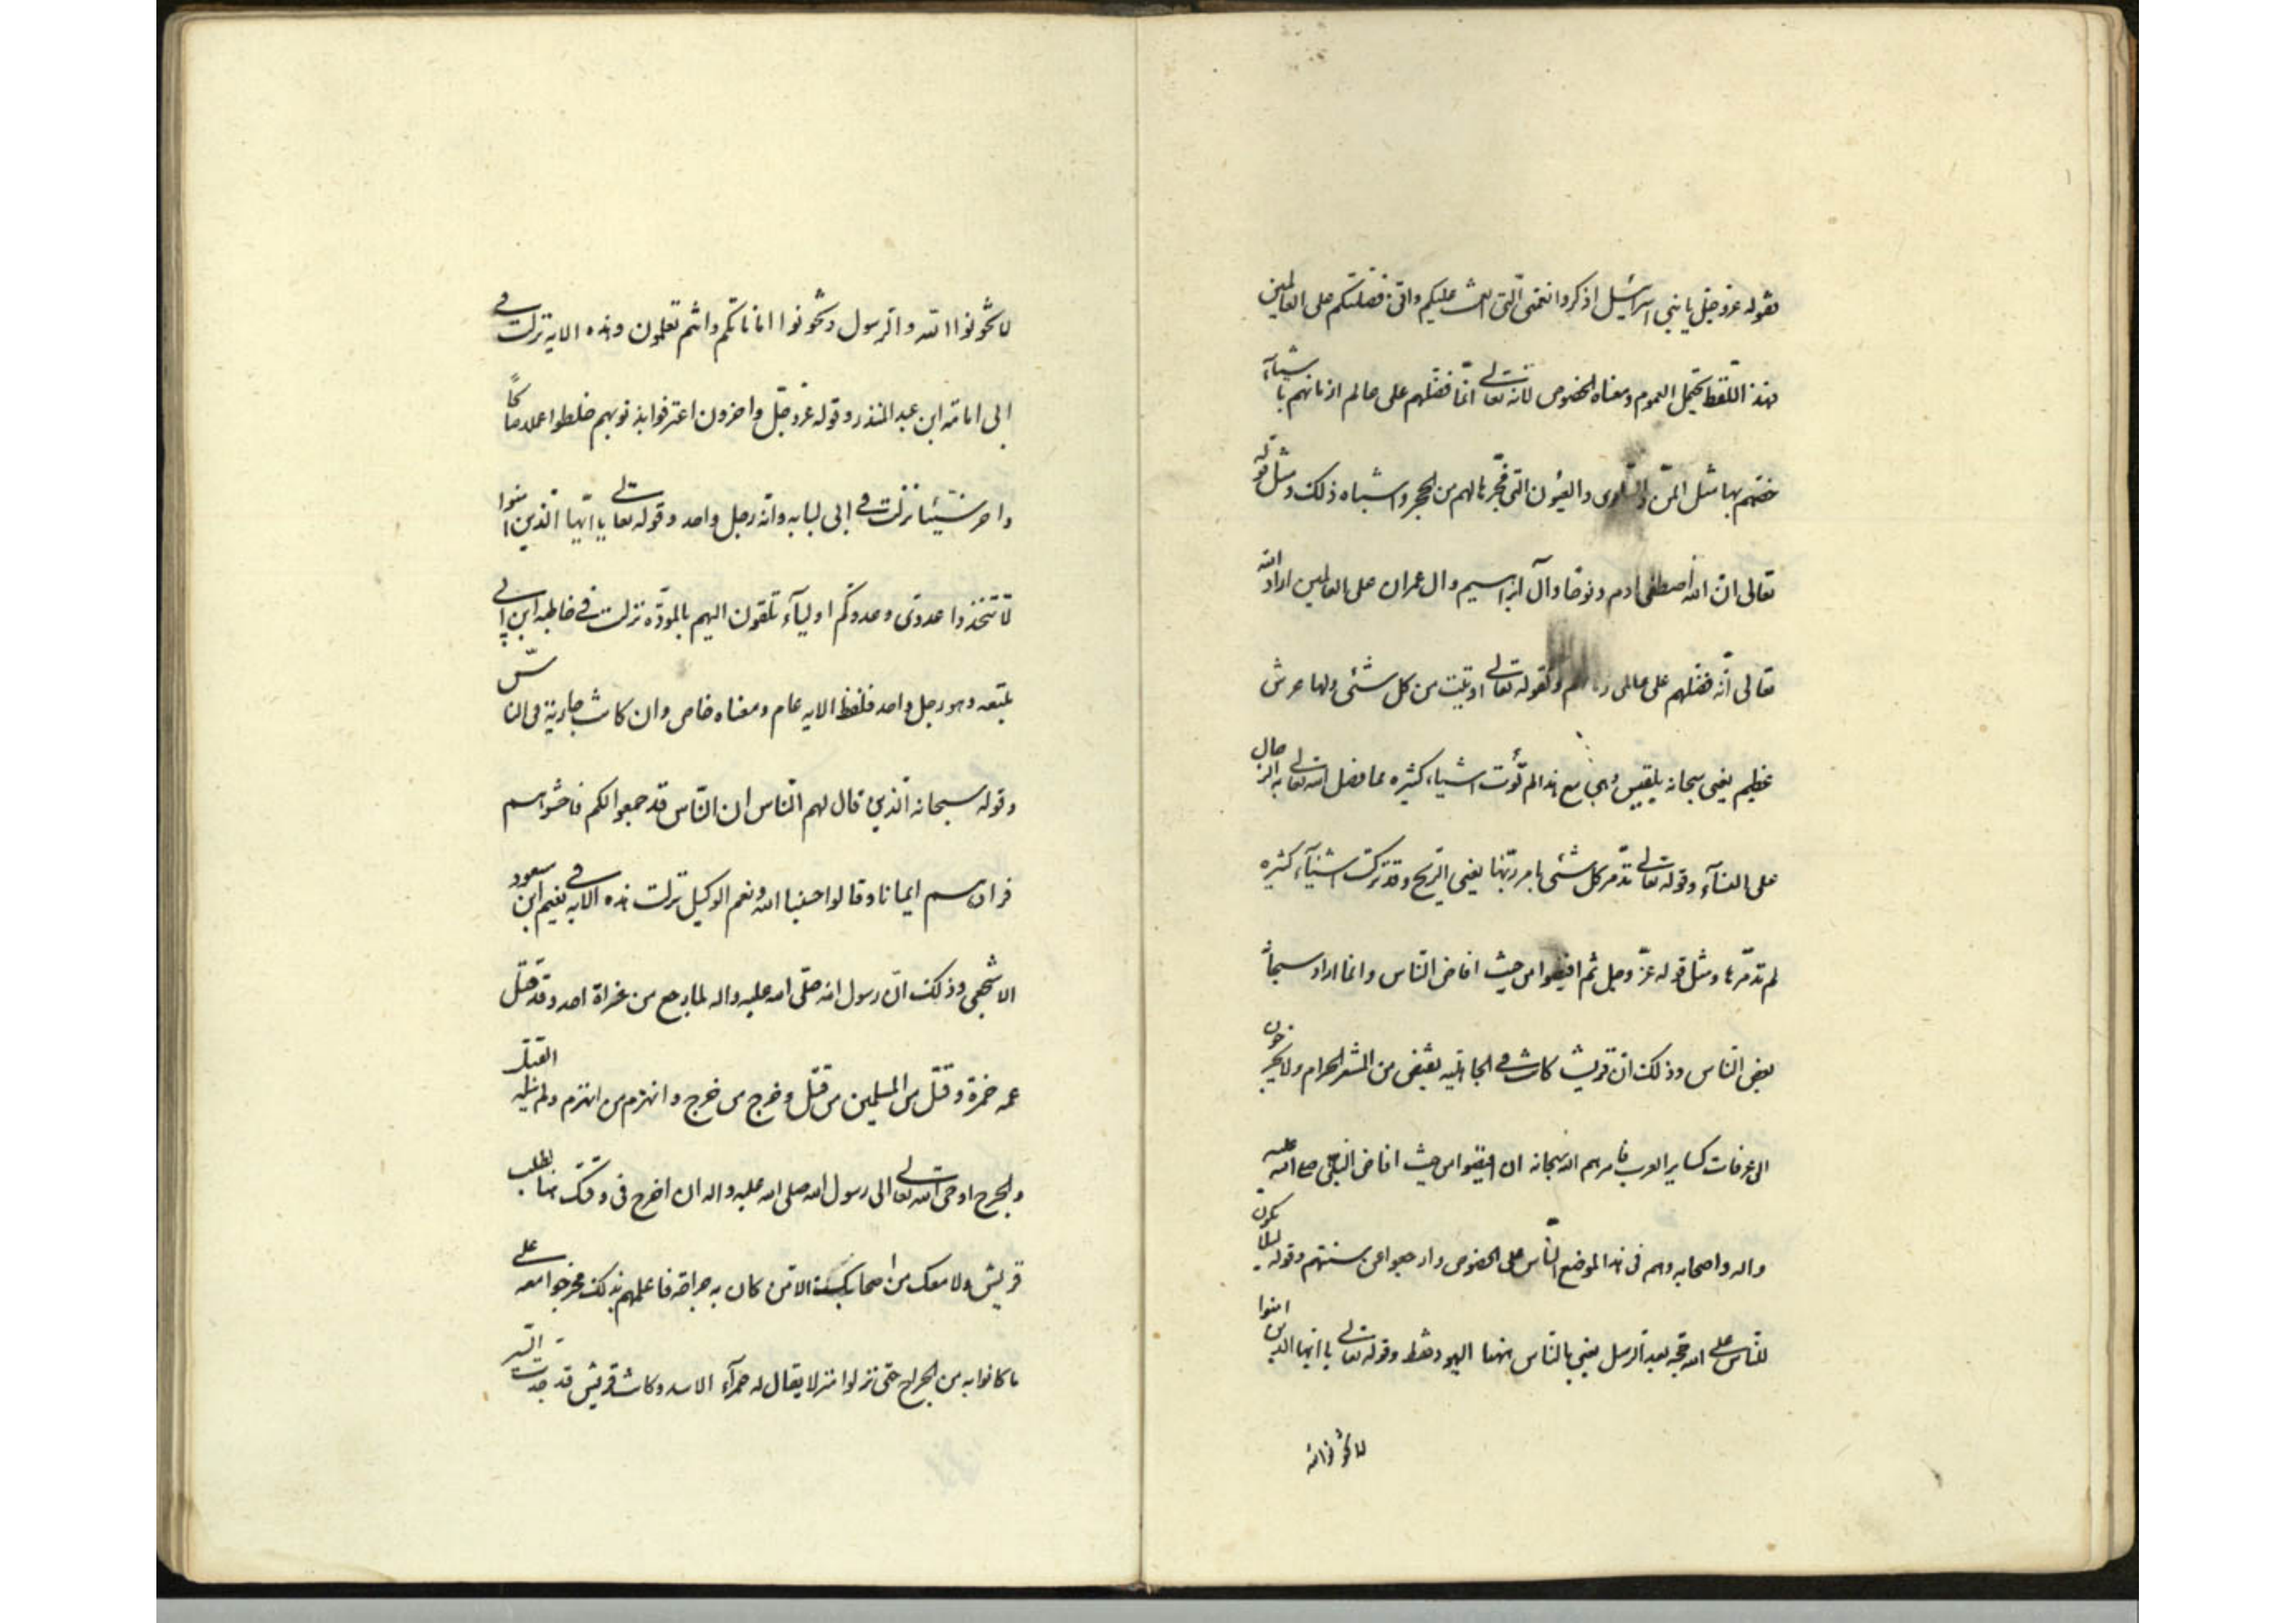 فقوله عز وجل يا بني اسرائيل اذكروا نعمتي التي انعمت عليكم واني فضلتكم على العالمين
فهذا اللفظ يحتمل العموم ومعناه الخصوص لانه تعالى انما فضلهم على عالم ازمانهم باشياء
خصهم بها مثل المن والسلوى والعيون التي فجرها لهم من الحجر واشباه ذلك ومثل قوله
تعالى ان الله اصطفى ادم ونوحا وآل ابراهيم وال عمران على العالمين اراد الله
تعالى انه فضلهم على عالمي وكقوله تعالى اوتيت من كل شئى ولها عرش
عظيم يعنى سبحانه بلقيس وهى مع هذا لم تؤت اشياء كثيره مما فضل الله تعالى به الرجال
على النسآء وقوله تعالى تدمر كل شئى بامر ربها يعنى الريح وقد تركت اشيآء كثيره
لم تدمرها ومثل قوله عز وجل ثم افيضوا من حيث افاض الناس وانما اراد سبحانه
بعض الناس وذلك ان قريش كانت في الجاهليه تفيض من المشعر الحرام ولا يخرجون
الى عرفات كساير العرب فامرهم الله سبحانه ان يفيضوا من حيث افاض النبي صلى الله عليه
واله واصحابه وهم فى هذا الموضع الناس على الخصوص وارجعوا عن سنتهم وقوله لئلا يكون
للناس على الله حجه بعد الرسل يعنى بالناس ههنا اليهود فقط وقوله تعالى يا ايها الذين امنوا
لا تخونوا الله
لا تخونوا الله والرسول وتخونوا اماناتكم وانتم تعلمون وهذه الايه نزلت في
ابى امامة ابن عبد المنذر وقوله عز وجل واخرون اعترفوا بذنوبهم خلطوا عملا صالحا
واخر سيئا نزلت في ابى لبابه وانه رجل واحد وقوله تعالى يا ايها الذين امنوا
لا تتخذوا عدوى وعدوكم اوليآء تلقون اليهم بالموده نزلت في خاطبه ابن ابى
بلتعه وهو رجل واحد فلفظ الايه عام ومعناه خاص وان كانت جارية فى الناس
وقوله سبحانه الذين قال لهم الناس ان الناس قد جمعوا لكم فاخشوهم
فزادهم ايمانا وقالوا حسبنا الله ونعم الوكيل نزلت هذه الايه في نعيم ابن مسعود
الاشجعى وذلك ان رسول الله صلى الله عليه واله لما رجع من غزاة احد وقد قتل
عمه حمزة وقتل من المسلمين من قتل وجرح من جرح وانهزم من انهزم ولم ينله القتل
والجرح اوحى الله تعالى الى رسول الله صلى الله عليه واله ان اخرج فى وقتك هذا لطلب
قريش ولا معك من اصحابك الا من كان به جراحه فاعلمهم بذلك فخرجوا معه على
ما كانوا به من الجراح حتى نزلوا منزلا يقال له حمرآء الاسد وكانت قريش قد جدت السير